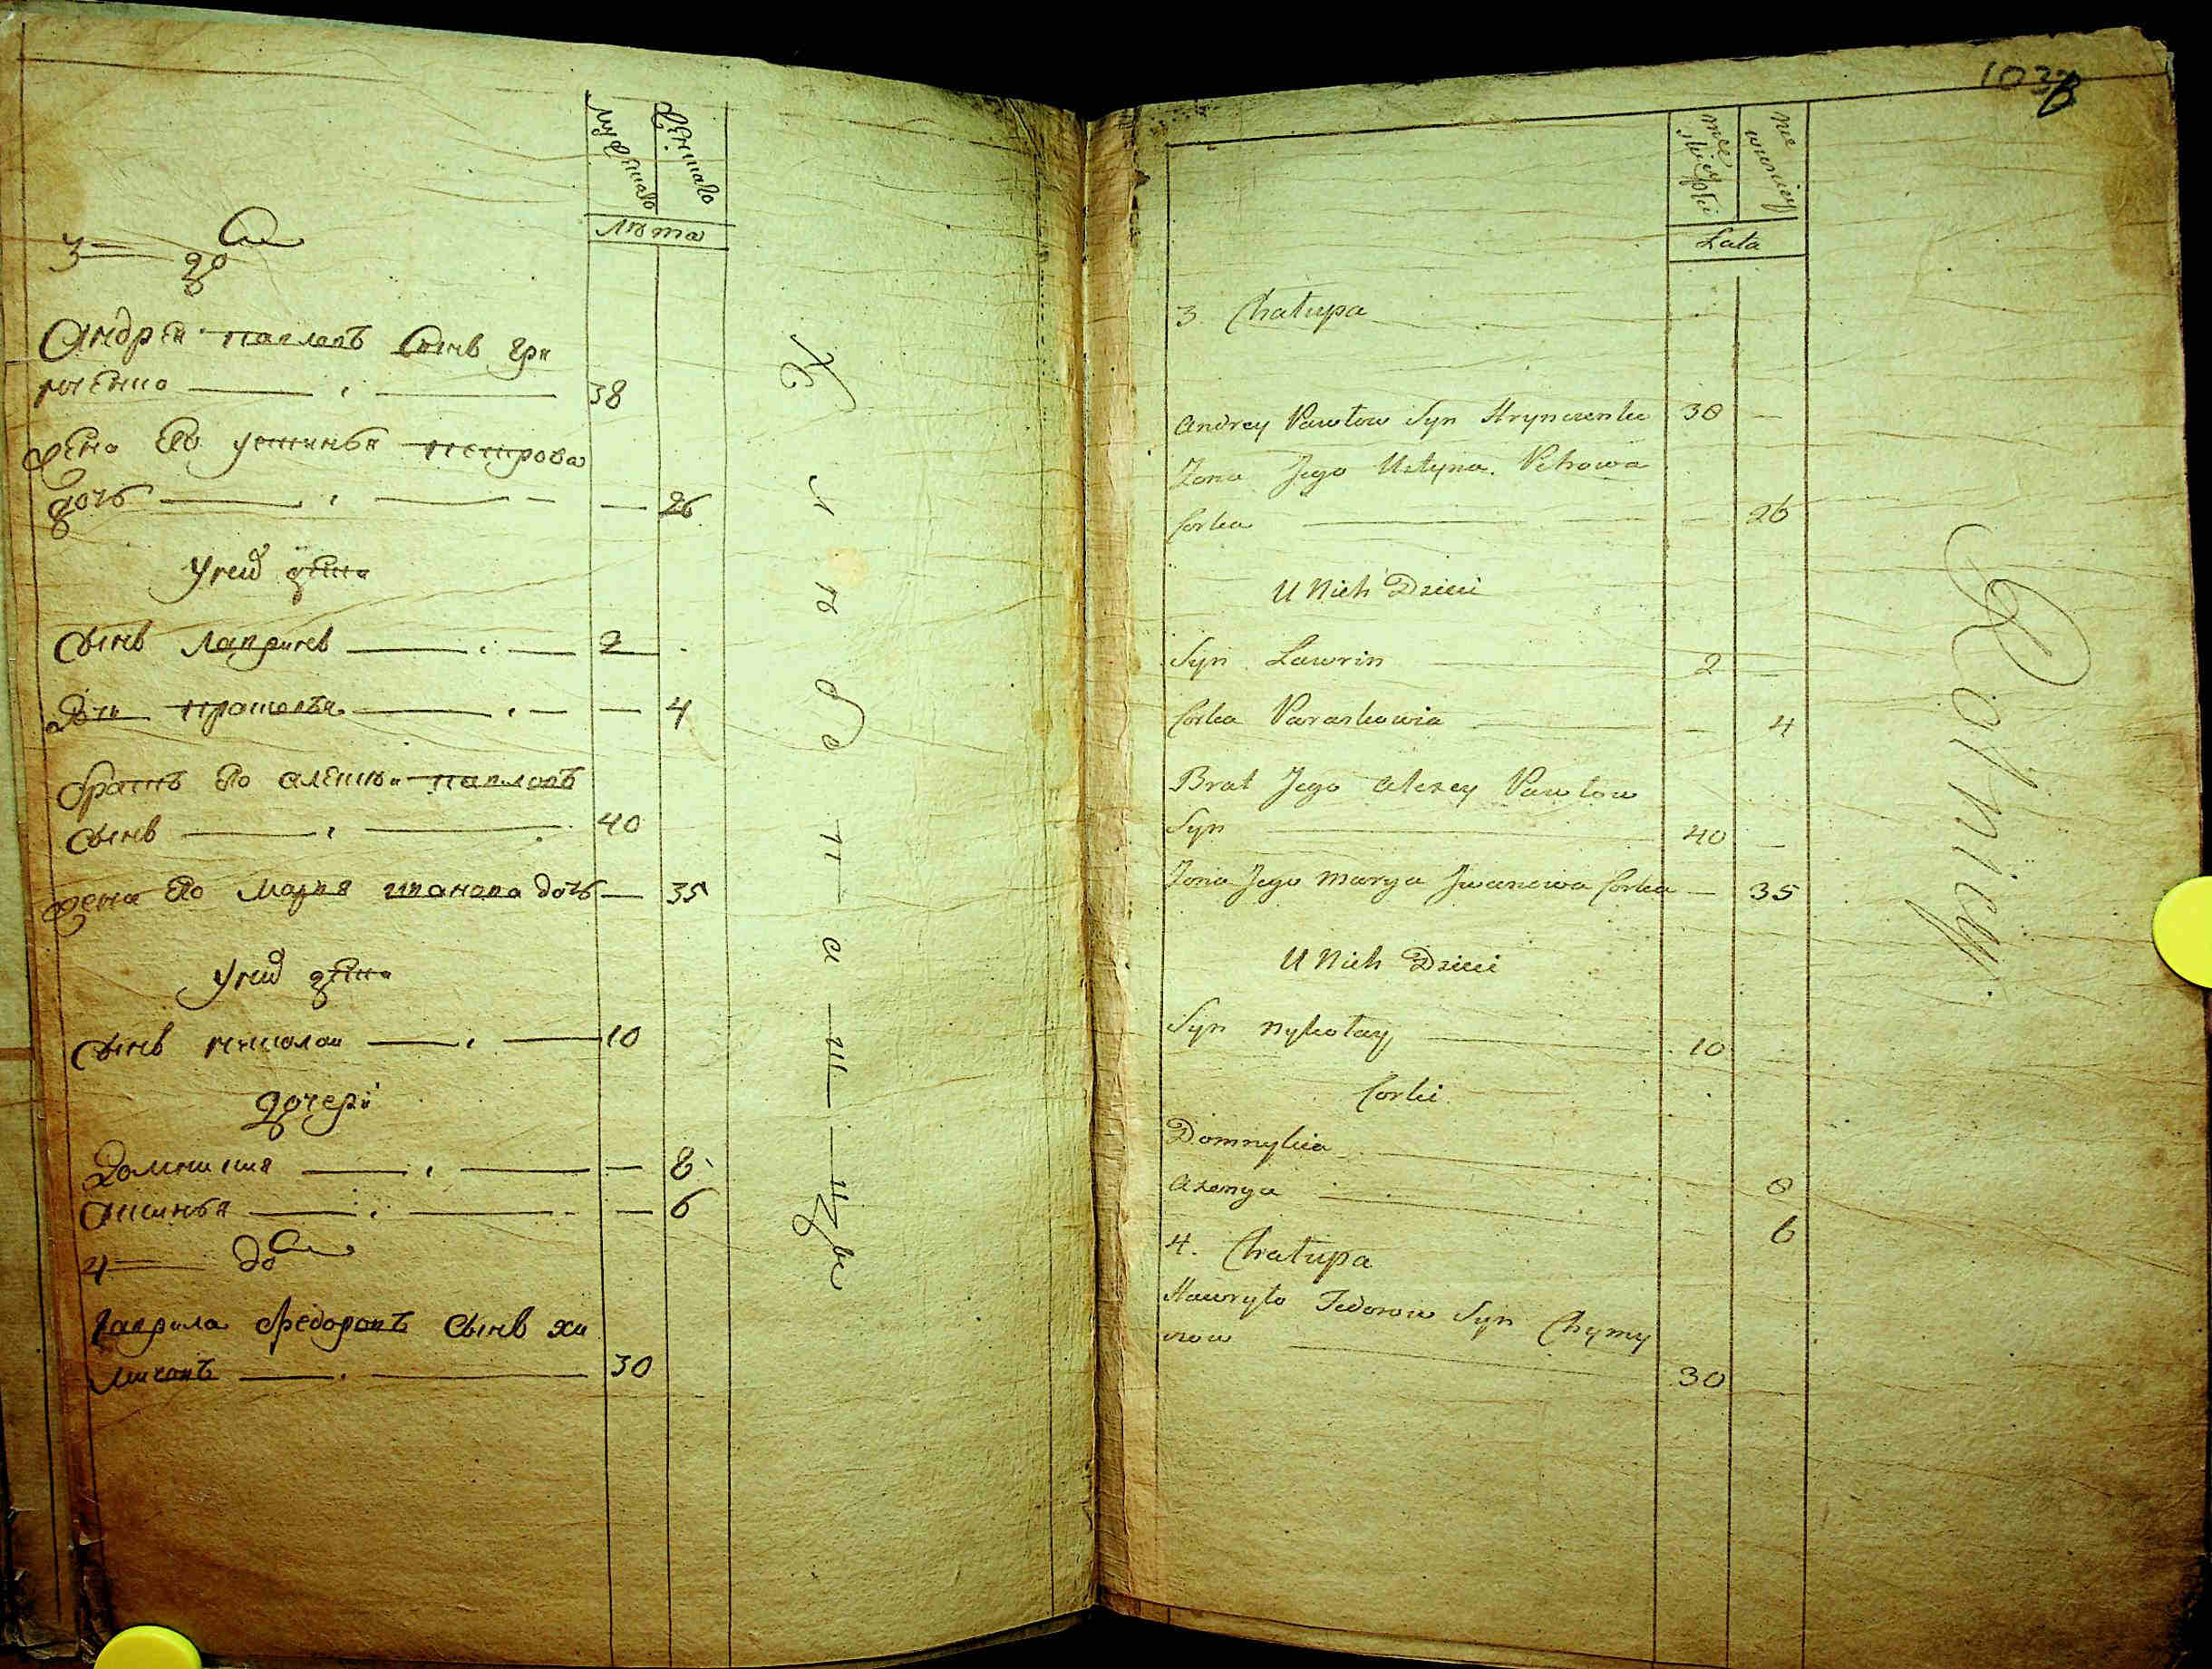 мужеска
женска
лѣта
3 домъ
Андрей павловъ Сынъ гри
нченко 38
жена Его устинья петрова
дочь — 26
У нихъ дѣти
Сынъ лавринъ 2
Дочь прасковья — 4
братъ Его алексѣй павловъ
сынъ 40
жена Его марья иванова дочь — 35
У нихъ дѣти
Сынъ николай 10
дочери
Домникия — 8
аксинья — 6
4 домъ
гаврила Федоровъ Сынъ хи
мичовъ 30
Хлѣбопашцы
103
męskiey płci
Lata
3 Chałupa
Andrey Pawłow Syn Hrynczenko 38 —
Żona Jego Ustyna Petrowa
Corka — 26
U Nich Dzieci
Syn Lawrin 2 —
Corka Paraskowia — 4
Brat Jego Alexey Pawłow
Syn 40 —
Żona Jego Marya Jwanowa Corka — 35
U Nich Dzieci
Syn Nykołay 10
Corki
Domnykia 8
Axenya 6
4. Chałupa
Hawryło Fedorow Syn Chymy
czow 30
Rolnicy